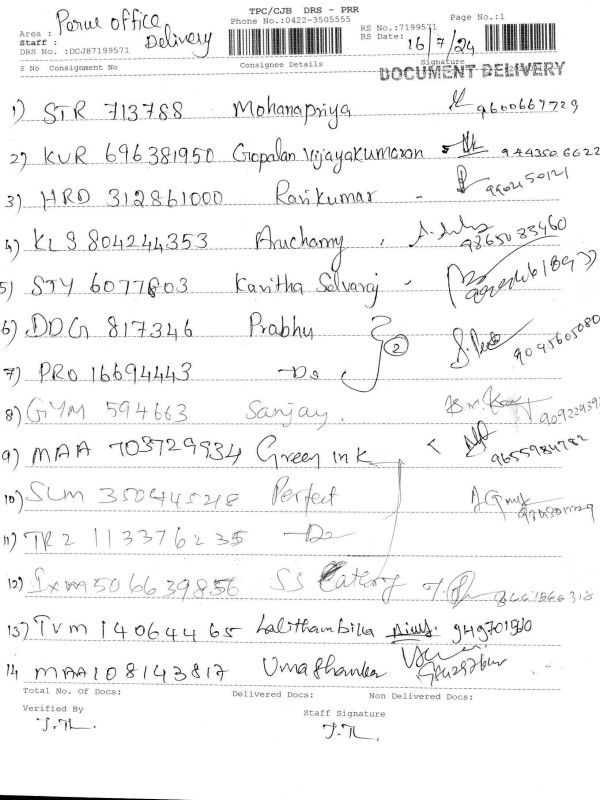 TPC/CJB DRS - PRR
Phone No.:0422-3505555 Page No.:1
Area : Parue office
Staff : Delivery
DRS No. :DCJB7199571
RS No.:7199571
RS Date: 16/7/24
S No Consignment No Consignee Details Signature
DOCUMENT DELIVERY
1) STR 713788 Mohanapriya 9600667729
2) KUR 696381950 Gopalan Vijayakumaran 944350 6622
3) HRD 312861000 Ravikumar - 9902150121
4) KLS 804244353 Aruchamy 9865083460
5) STY 6077803 Kavitha Selvaraj -
6) DDG 817346 Prabhu 2
7) PRO 16694443 -Do 9045605080
8) GYM 594663 Sanjay.
9) MAA 703729934 Green ink 9655984782
10) SLM 350445218 Perfect
11) TRZ 113376235 -Do
12) 5066639856 SS
13) TVM 14064465 Lalithambika
14 MAA108143817 Umashankar
Total No. Of Docs: Delivered Docs: Non Delivered Docs:
Verified By Staff Signature